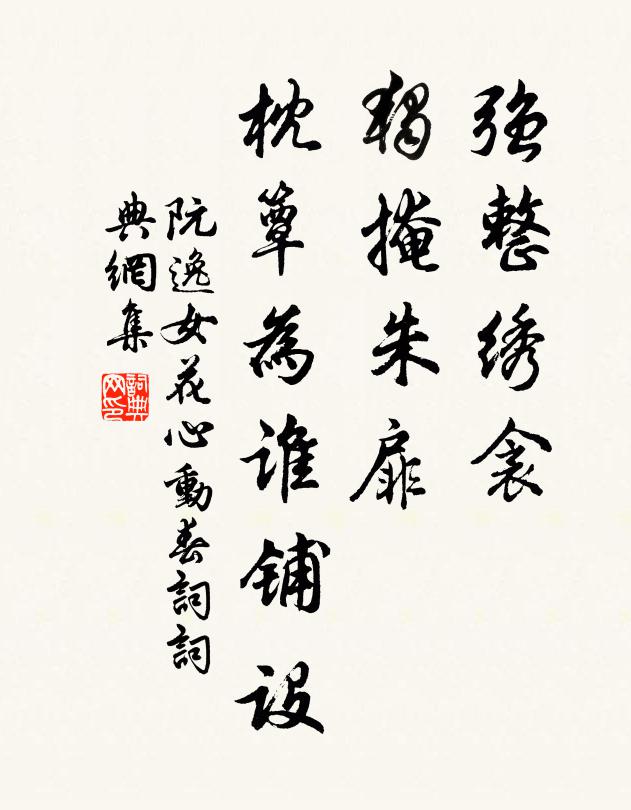 强整绣衾
獨掩朱扉
枕簟為谁铺設
阮逸女花心動春詞詞
典網集
詞典网印